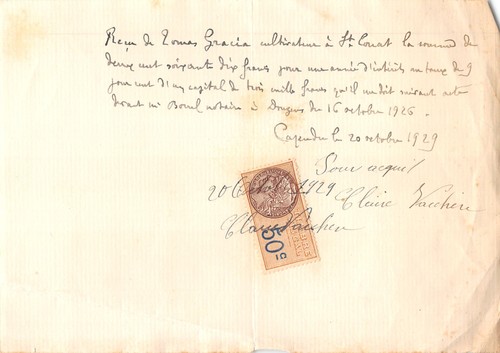 Reçu de Tomas Gracia cultivateur à St Couat la somme de
deux cent soixante dix francs pour une année d'intérêts au taux de 9
pour cent d'un capital de trois mille francs qu'il me doit suivant acte
devant Me notaire à Douzens du 16 octobre 1926.
Capendu le 20 octobre 1929
Pour acquit
20 Octobre 1929
Claire Vacchère
50c